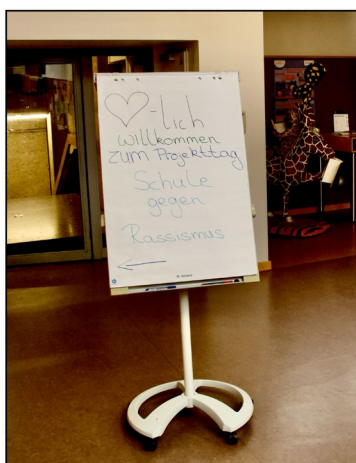 ♡-lich
willkommen
zum Projekttag
Schule
gegen
Rassismus
←